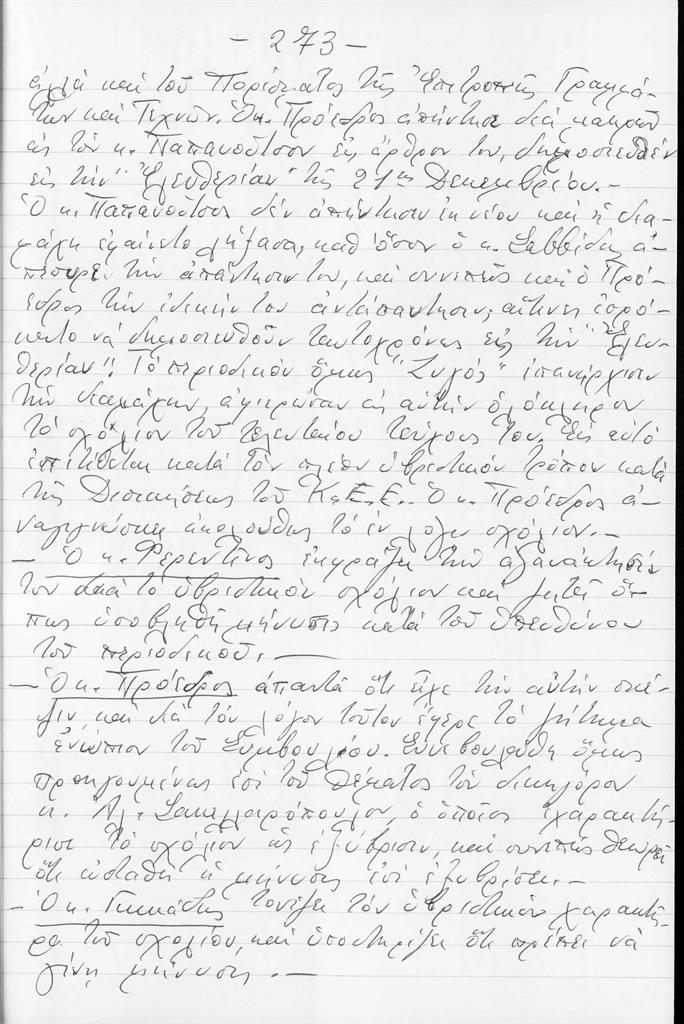 - 273 -
ἀλλά καί τοῦ Πορίσματος τῆς Ἐπιτροπῆς Γραμμά-
των καί Τεχνῶν. Ὁ κ. Πρόεδρος ἀπήντησε διά μακρῶν
εἰς τόν κ. Παπανοῦτσον εἰς ἄρθρον του, δημοσιευθέν
εἰς τήν "Ἐλευθερίαν" τῆς 21ης Δεκεμβρίου.-
Ὁ κ. Παπανοῦτσος δέν ἀπήντησεν ἐκ νέου καί ἡ δια-
μάχη ἐφαίνετο λήξασα, καθ' ὅσον ὁ κ. Σαββίδης ἀ-
πέσυρε τήν ἀπάντησιν του, καί συνεπῶς καί ὁ Πρό-
εδρος τήν ἰδικήν του ἀνταπάντησιν, αἵτινες ἐπρό-
κειτο νά δημοσιευθοῦν ταυτοχρόνως εἰς τήν "Ἐλευ-
θερίαν". Τό περιοδικόν ὅμως "Ζυγός" ἐπανήρχισεν
τήν διαμάχην, ἀφιερῶσαν εἰς αὐτήν ὁλόκληρον
τό σχόλιον τοῦ τελευταίου τεύχους του. Εἰς αὐτό
ἐπιτίθεται κατά τόν πλέον ὑβριστικόν τρόπον κατά
τῆς Διοικήσεως τοῦ Κ.Ε.Ε.. Ὁ κ. Πρόεδρος ἀ-
ναγιγνώσκει ἀκολούθως τό ἐν λόγῳ σχόλιον.-
- Ὁ κ. Φερεντῖνος ἐκφράζει τήν ἀγανάκτησίν
του διά τό ὑβριστικόν σχόλιον καί ζητεῖ ὅ-
πως ὑποβληθῇ μήνυσις κατά τοῦ ὑπευθύνου
τοῦ περιοδικοῦ.-
- Ὁ κ. Πρόεδρος ἀπαντᾶ ὅτι εἶχε τήν αὐτήν σκέ-
ψιν, καί διά τόν λόγον τοῦτον ἔφερε τό ζήτημα
ἐνώπιον τοῦ Συμβουλίου. Συνεβουλεύθη ὅμως
προηγουμένως ἐπί τοῦ θέματος τόν δικηγόρον
κ. Ἀλ. Σακελλαρόπουλον, ὁ ὁποῖος ἐχαρακτή-
ρισε τό σχόλιον ὡς ἐξύβρισιν, καί συνεπῶς θεωρεῖ
ὅτι εὐσταθεῖ ἡ μήνυσις ἐπί ἐξυβρίσει.-
- Ὁ κ. τονίζει τόν ὑβριστικόν χαρακτῆ-
ρα τοῦ σχολίου, καί ὑποστηρίζει ὅτι πρέπει νά
γίνῃ μήνυσις.-